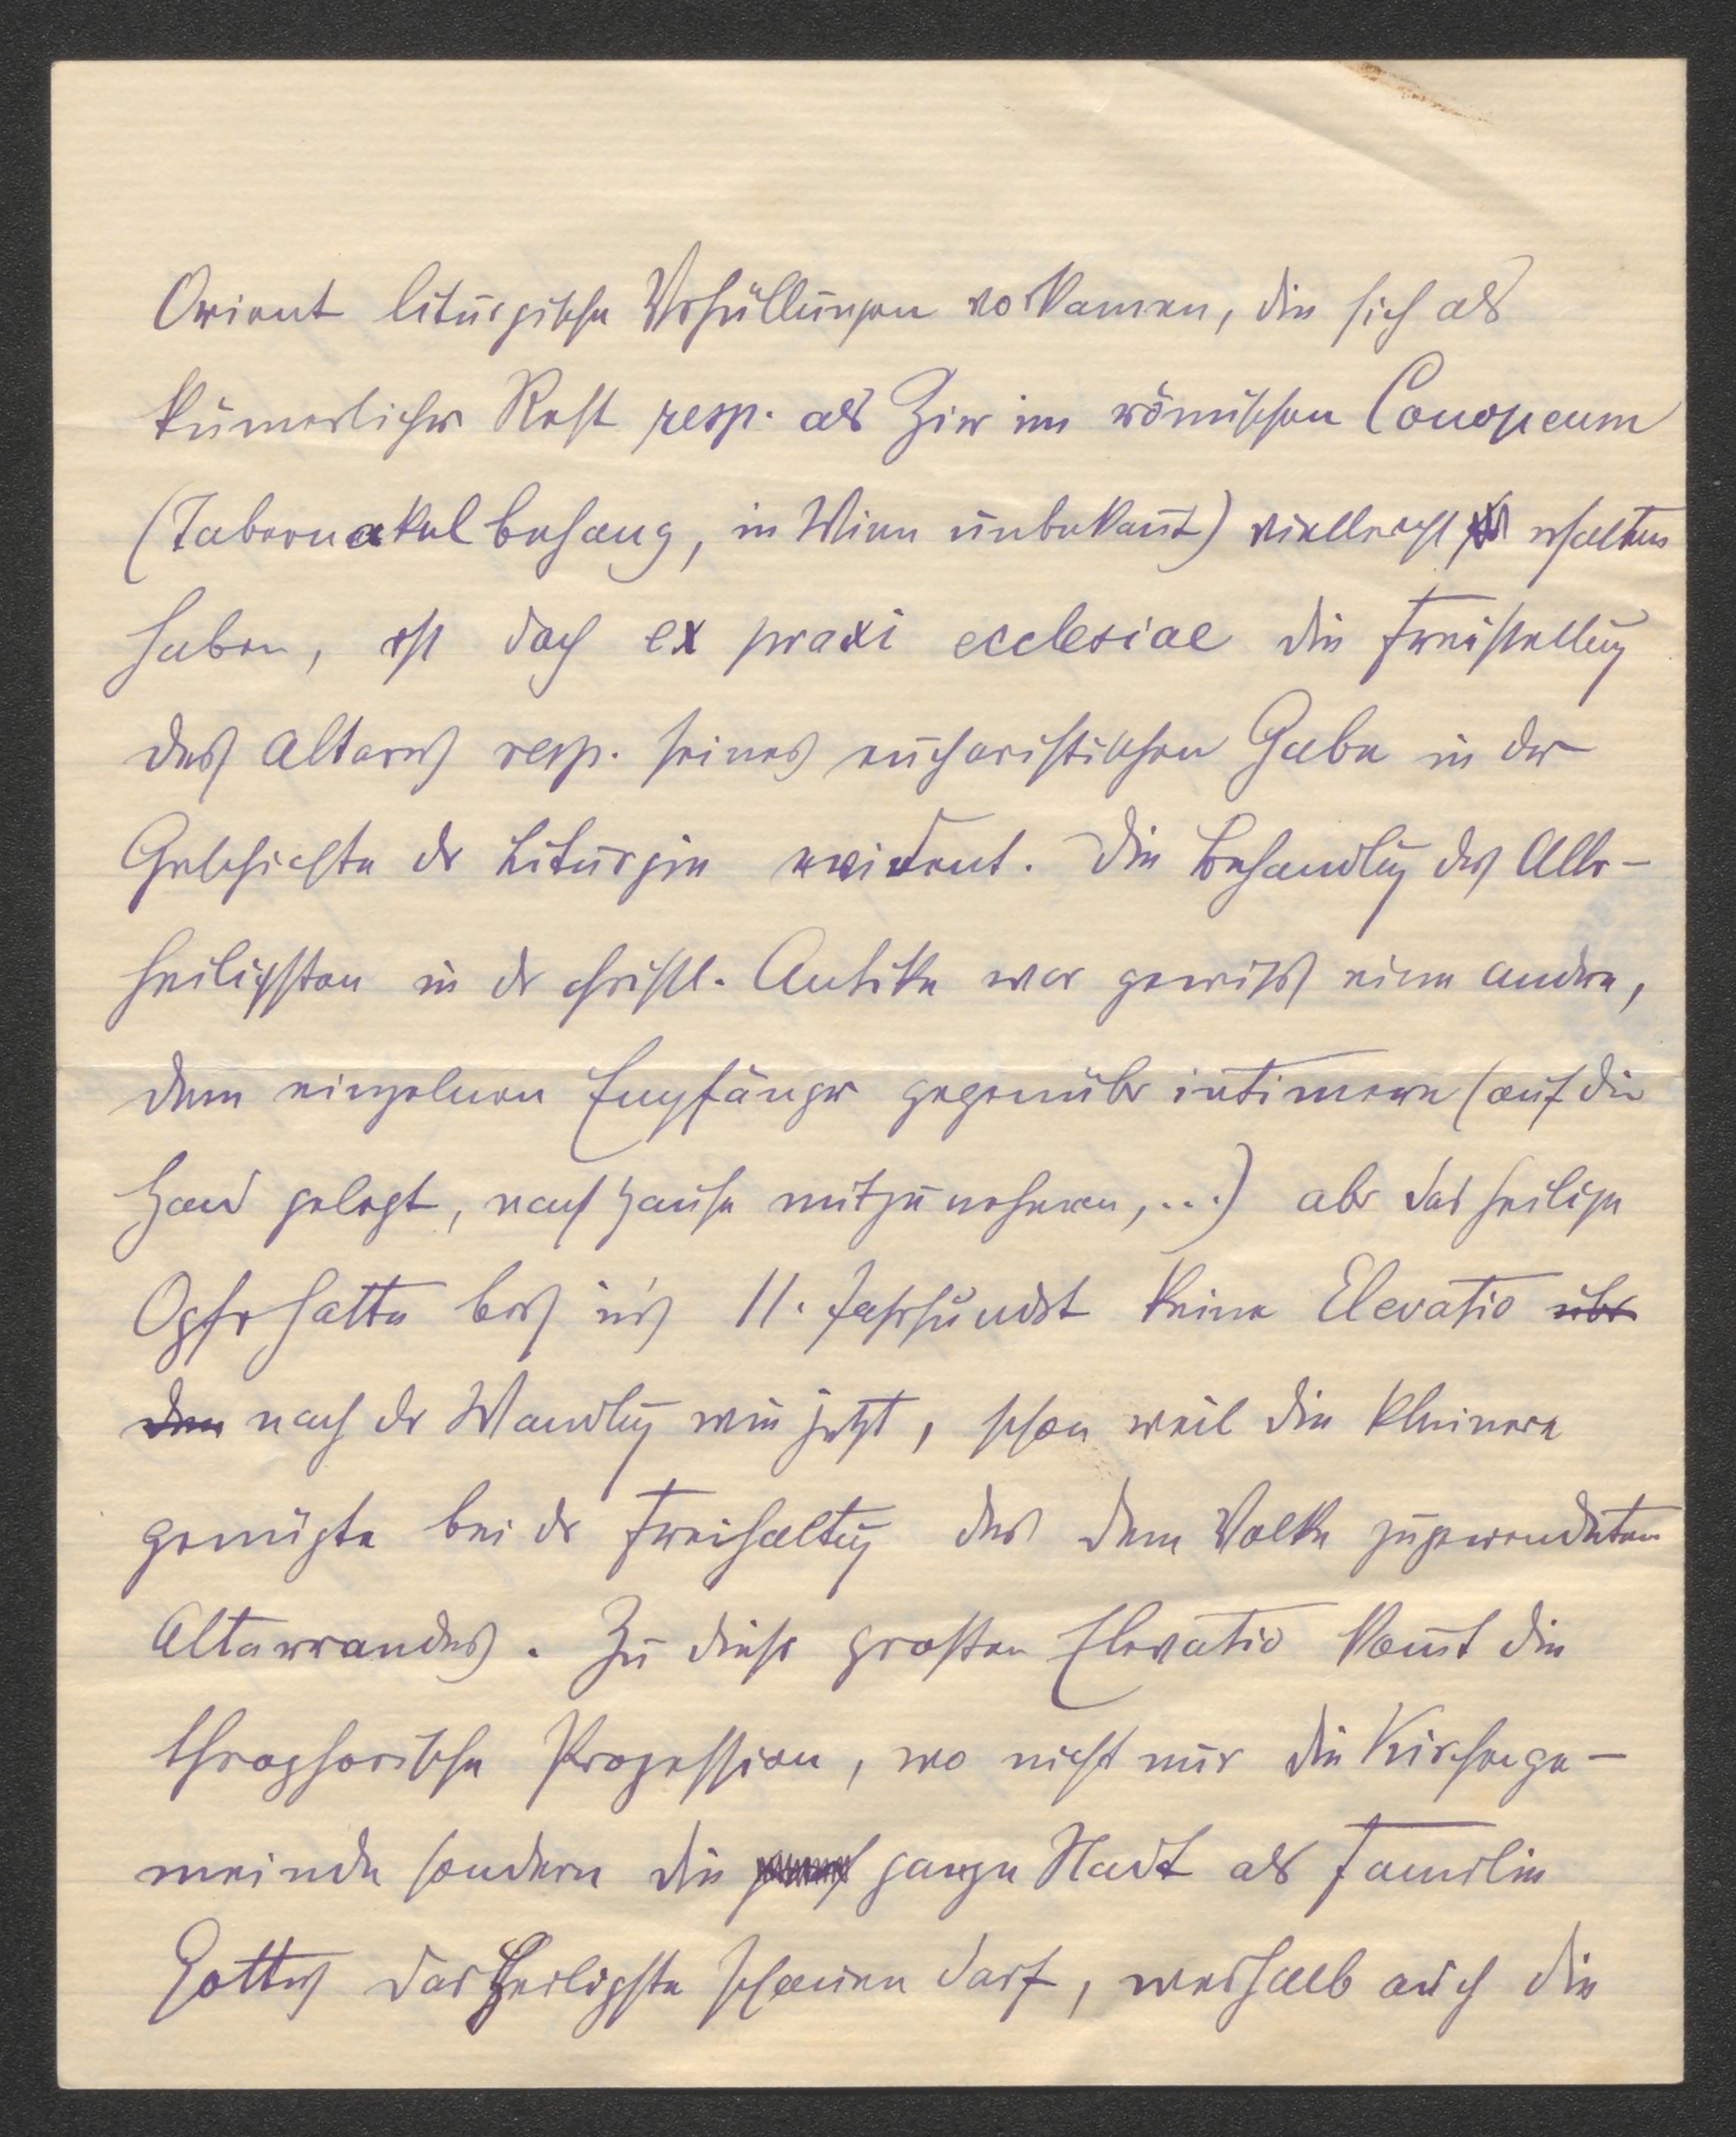 Orient liturgische Verhüllungen vorkamen, die sich als
kümerlicher Rest resp. als Zier im römischen Conopeum
(Tabernakelbehang, in Wien unbekan̄t) vielleicht erhalten
haben, ist doch ex praxi ecclesiae die Freistellung
des Altares resp. seines eucharistischen Gabe in der
Geschichte der Liturgie evident. Die Behandlung des Aller-
heiligsten in der christl. Antike war gewiss eine andere,
dem einzelnen Empfänger gegenüber intimere (auf die
Hand gelegt, nach Hause mitzunehmen, ...) aber das heilige
Opfer hatte bis in's 11. Jahrhundert keine Elevatio über
den nach der Wandlung wie jetzt, schon weil die kleinere
genügte bei der Freihaltung des dem Volke zugewendeten
Altarrandes. Zu dieser großen Elevatio kom̄t die
theophorische Prozession, wo nicht nur die Kirchenge-
meinde sondern die ganze Stadt als Familie
Gottes das Heiligste schauen darf, weshalb auch die